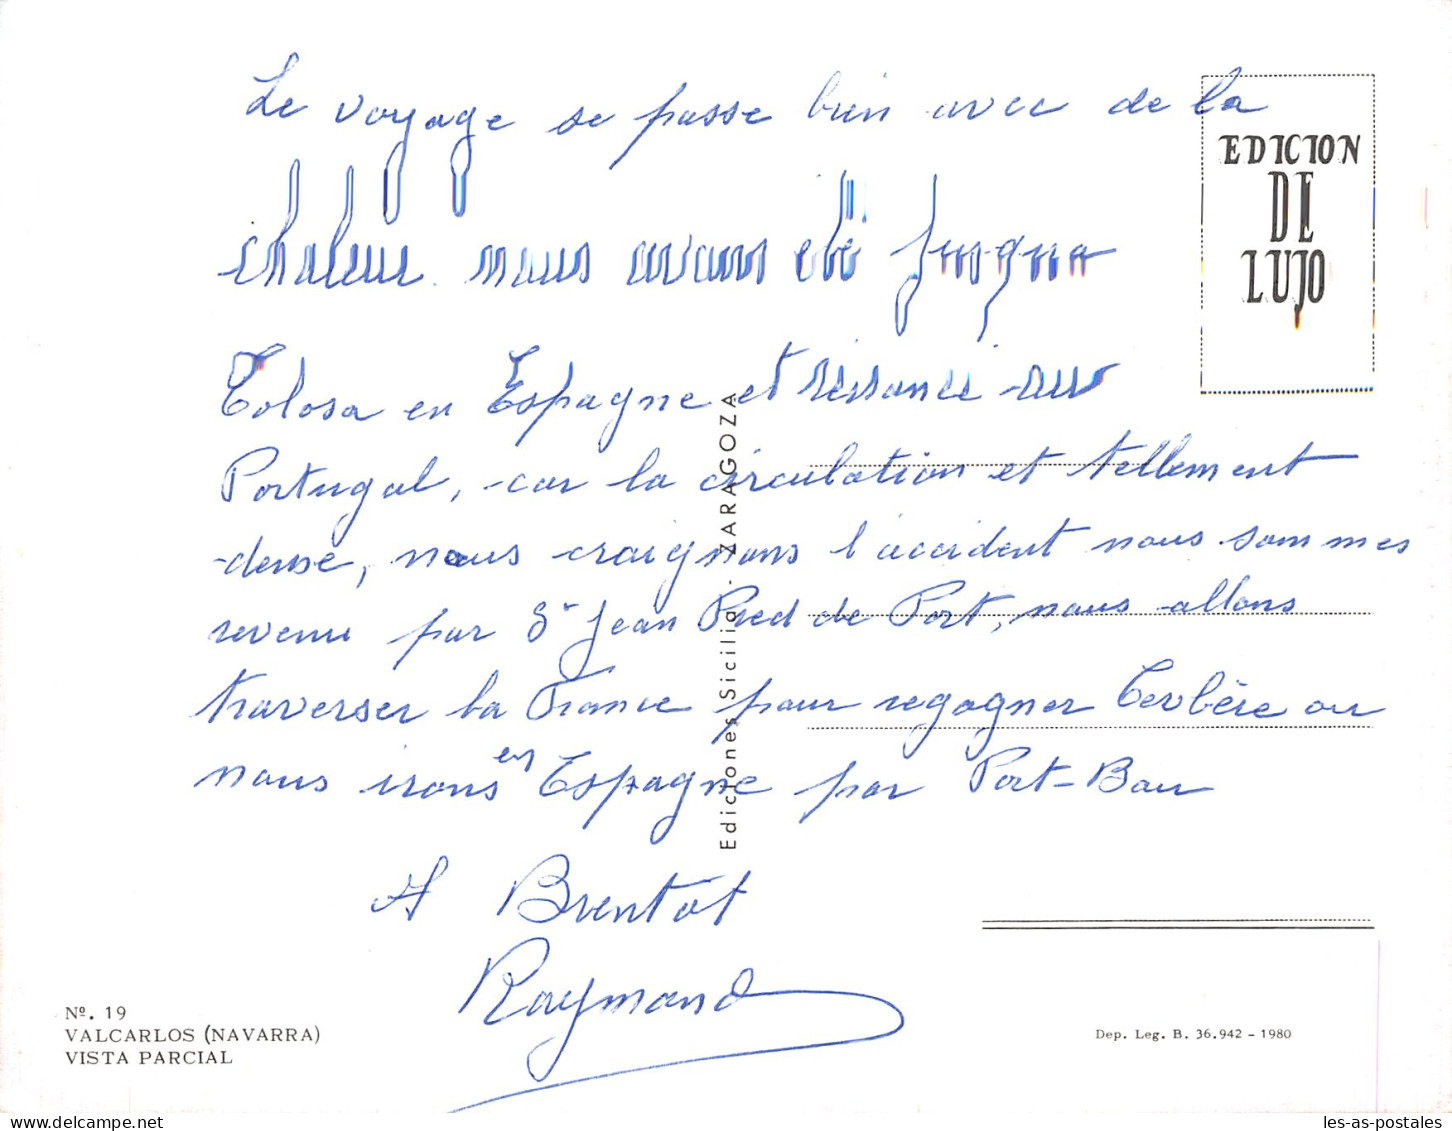 Le voyage se passe bien avec de la
chaleur. nous avons été jusqua
Tolosa en Espagne et
Portugal, car la circulation et tellement
dense, nous craignons l'accident nous sommes
revenu par St Jean Pied de Port, nous allons
traverser la France pour regagner Cerbère ou
nous irons en Espagne par Port-Bou
A Brentot
Raymond
EDICION
DE
LUJO
Ediciones Sicilia - ZARAGOZA
Nº. 19
VALCARLOS (NAVARRA)
VISTA PARCIAL
Dep. Leg. B. 36.942 - 1980
les-as-postales